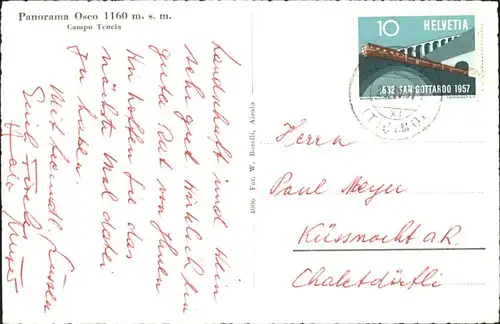 Panorama Osco 1160 m. s. m.
Campo Tencia
Landschaft und Wein
sehr gut wirklich ein
gute Rat von Ihnen
Wir hoffen Sie das
nächst Mal dabei
zu haben.
Mit freundl. Grüssen
4096 Fot. W. Borelli, Airolo
10 HELVETIA
1532 SAN GOTTARDO 1957
Herrn
Paul Meyer
Küssnacht a.R.
Chaletdörfli